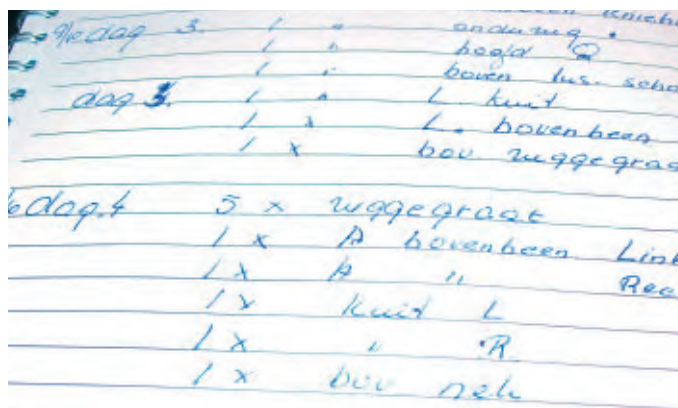 dag 3. 1 " onderrug.
1 " hoofd
1 " boven tus. scho
dag 3. 1 " L. kuit
1 x L. bovenbeen
1 x bov. ruggegraa
dag.4 5 x ruggegraat
1 x A bovenbeen Link
1 x A " Rec
1 x kuit L
1 x " R
1 x bov nek